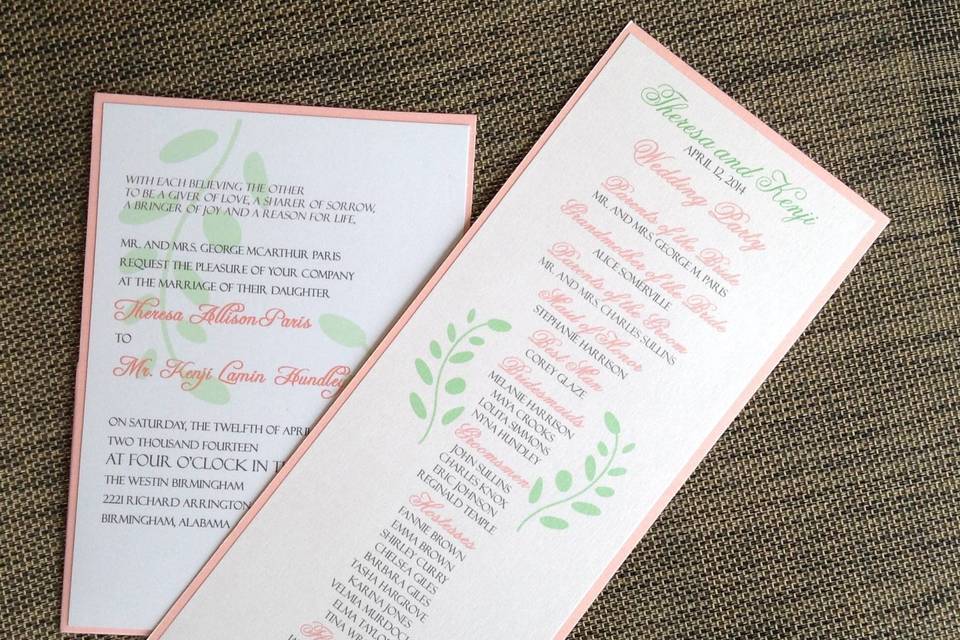 WITH EACH BELIEVING THE OTHER
TO BE A GIVER OF LOVE, A SHARER OF SORROW,
A BRINGER OF JOY AND A REASON FOR LIFE.
MR. AND MRS. GEORGE MCARTHUR PARIS
REQUEST THE PLEASURE OF YOUR COMPANY
AT THE MARRIAGE OF THEIR DAUGHTER
Theresa Allison Paris
TO
Mr. Kenji Lamin Hundley
ON SATURDAY, THE TWELFTH OF APRI
TWO THOUSAND FOURTEEN
AT FOUR O'CLOCK IN T
THE WESTIN BIRMINGHAM
2221 RICHARD ARRINGTON
BIRMINGHAM, ALABAMA
Theresa and Kenji
APRIL 12, 2014
Wedding Party
Parents of the Bride
MR. AND MRS. GEORGE M. PARIS
Grandmother of the Bride
ALICE SOMERVILLE
Parents of the Groom
MR. AND MRS. CHARLES SULLINS
Maid of Honor
STEPHANIE HARRISON
Best Man
COREY GLAZE
Bridesmaids
MELANIE HARRISON
MAYA CROOKS
LOLITA SIMMONS
NYNA HUNDLEY
Groomsmen
JOHN SULLINS
CHARLES KNOX
ERIC JOHNSON
REGINALD TEMPLE
Hostesses
FANNIE BROWN
EMMA BROWN
SHIRLEY CURRY
CHELSEA GILES
BARBARA GILES
TASHA HARGROVE
KARINA JONES
VELMIA MURDOCK
ELMA TAYLO
TINA WR